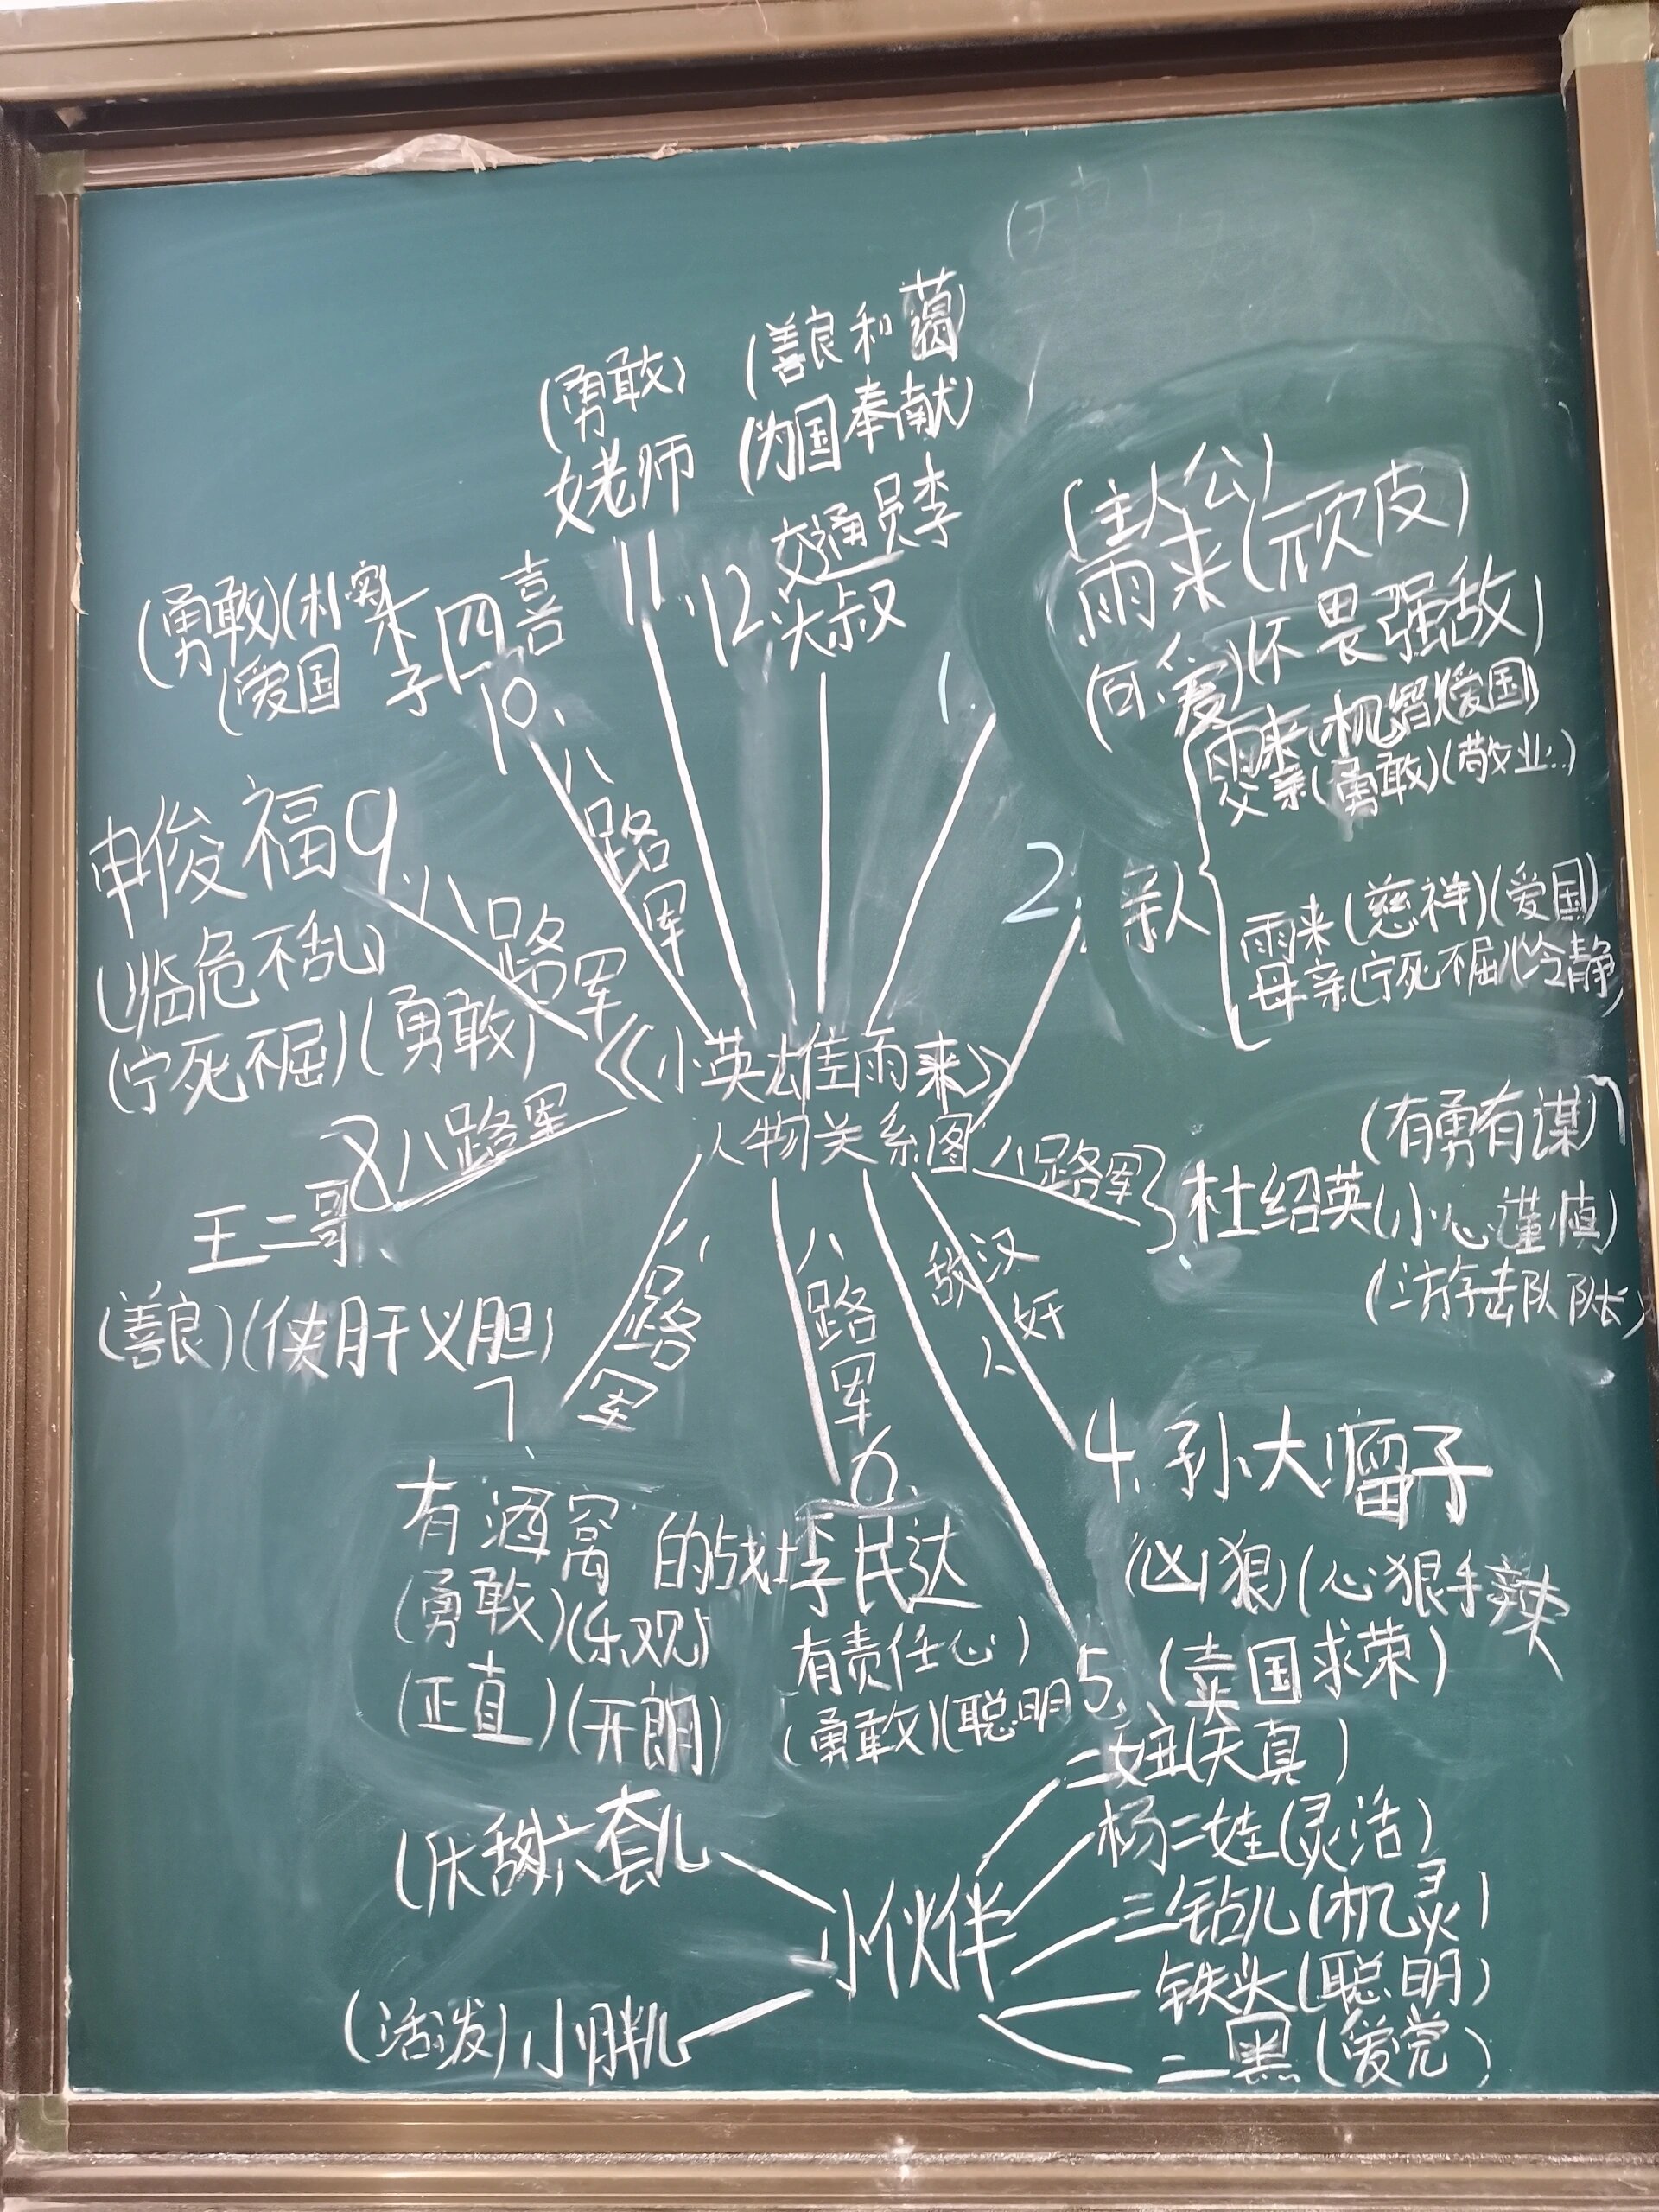 (勇敢)
女老师
11.
(善良和蔼
(为国奉献)
交通员李
大叔
12
(主人公)
雨来(顽皮)
(可爱)(不畏强敌)
1
2.
亲人
雨来(机智)(爱国)
父亲(勇敢)(敬业..)
雨来(慈祥)(爱国)
母亲(宁死不屈)(冷静)
(勇敢)(朴实
(爱国
李四喜
子
10.
八路军
申俊福9.
八路军
(临危不乱)
(宁死不屈)(勇敢)
《小英雄雨来》
人物关系图
8八路军
王二哥
(善良)(侠肝义胆)
八路军
3
杜绍英(小心谨慎)
(有勇有谋)
(游击队队长)
7.
八路军
有酒窝的战士
(勇敢)(乐观)
(正直)(开朗)
八路军
6.
李民达
有责任心)
(勇敢)(聪明
敌人
汉奸
4.孙大瘤子
(凶狠)(心狠手辣
5.(卖国求荣)
小伙伴
二妞(天真)
杨二娃(灵活)
三钻儿(机灵)
铁头(聪明)
二黑(爱党)
六套儿
(活泼)小胖儿